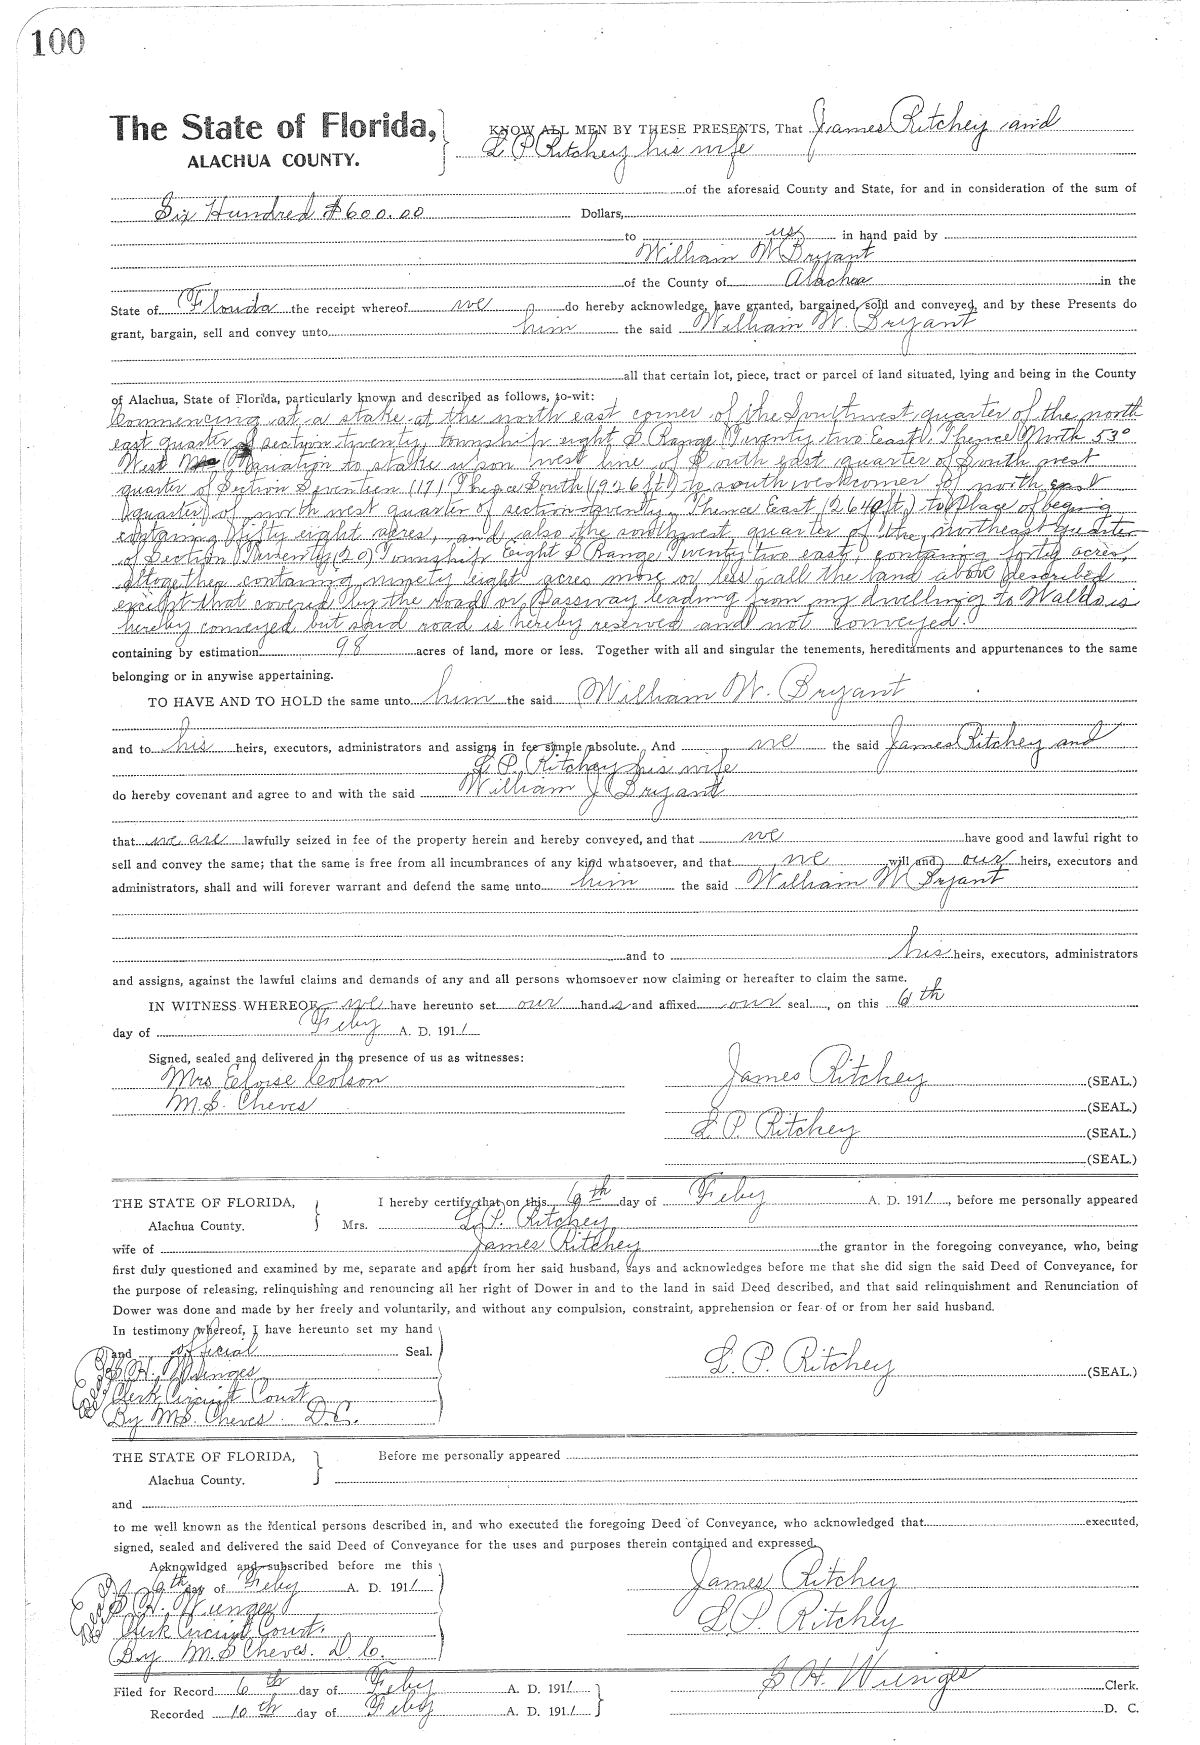 100
The State of Florida,
ALACHUA COUNTY.
KNOW ALL MEN BY THESE PRESENTS, That James Ritchey and
L P Ritchey his wife
of the aforesaid County and State, for and in consideration of the sum of
Six Hundred $600.00 Dollars,
to us in hand paid by
William W Bryant
of the County of Alachua in the
State of Florida the receipt whereof we do hereby acknowledge, have granted, bargained, sold and conveyed, and by these Presents do
grant, bargain, sell and convey unto him the said William W. Bryant
all that certain lot, piece, tract or parcel of land situated, lying and being in the County
of Alachua, State of Florida, particularly known and described as follows, to-wit:
Commencing at a stake at the north east corner of the Southwest quarter of the north
east quarter of section twenty, township eight S Range Twenty two East. Thence North 53°
West to stake upon west line of South east quarter of South west
quarter of Section Seventeen (17) Thence South (1926 ft) to south west corner of north east
quarter of north west quarter of section twenty. Thence East (2640 ft) to Place of beging
containing fifty eight acres, and also the southwest quarter of the northeast quarter
of Section Twenty (20) Township Eight S Range Twenty two east, containg forty acres,
altogether containg ninety eight acres more or less, all the land above described
except that covered by the road or Passway leading from my dwelling to Waldo is
hereby conveyed but said road is hereby reserved and not conveyed.
containing by estimation 98 acres of land, more or less. Together with all and singular the tenements, hereditaments and appurtenances to the same
belonging or in anywise appertaining.
TO HAVE AND TO HOLD the same unto him the said William W. Bryant
and to his heirs, executors, administrators and assigns in fee simple absolute. And we the said James Ritchey and
L P. Ritchey his wife
do hereby covenant and agree to and with the said William J Bryant
that we are lawfully seized in fee of the property herein and hereby conveyed, and that we have good and lawful right to
sell and convey the same; that the same is free from all incumbrances of any kind whatsoever, and that we will and our heirs, executors and
administrators, shall and will forever warrant and defend the same unto him the said William W Bryant
and to his heirs, executors, administrators
and assigns, against the lawful claims and demands of any and all persons whomsoever now claiming or hereafter to claim the same.
IN WITNESS WHEREOF we have hereunto set our hands and affixed our seal, on this 6th
day of Feby A. D. 1911
Signed, sealed and delivered in the presence of us as witnesses:
Mrs Eloise Colson
James Ritchey (SEAL.)
M.S. Cheves
(SEAL.)
L P. Ritchey (SEAL.)
(SEAL.)
THE STATE OF FLORIDA,
Alachua County.
I hereby certify that on this 6th day of Feby A. D. 1911, before me personally appeared
Mrs. L. P. Ritchey
wife of James Ritchey the grantor in the foregoing conveyance, who, being
first duly questioned and examined by me, separate and apart from her said husband, says and acknowledges before me that she did sign the said Deed of Conveyance, for
the purpose of releasing, relinquishing and renouncing all her right of Dower in and to the land in said Deed described, and that said relinquishment and Renunciation of
Dower was done and made by her freely and voluntarily, and without any compulsion, constraint, apprehension or fear of or from her said husband.
In testimony whereof, I have hereunto set my hand
and official Seal.
S H. Wienges
L. P. Ritchey (SEAL.)
Clerk Circuit Court
By M S. Cheves. D.C.
THE STATE OF FLORIDA,
Alachua County.
Before me personally appeared
and
to me well known as the identical persons described in, and who executed the foregoing Deed of Conveyance, who acknowledged that executed,
signed, sealed and delivered the said Deed of Conveyance for the uses and purposes therein contained and expressed.
Acknowldged and subscribed before me this
6th day of Feby A. D. 1911
James Ritchey
S H. Wienges
L. P. Ritchey
Clerk Circuit Court.
By M.S Cheves. D C.
Filed for Record 6th day of Feby A. D. 1911
S H. Wienges Clerk.
Recorded 10th day of Feby A. D. 1911
D. C.